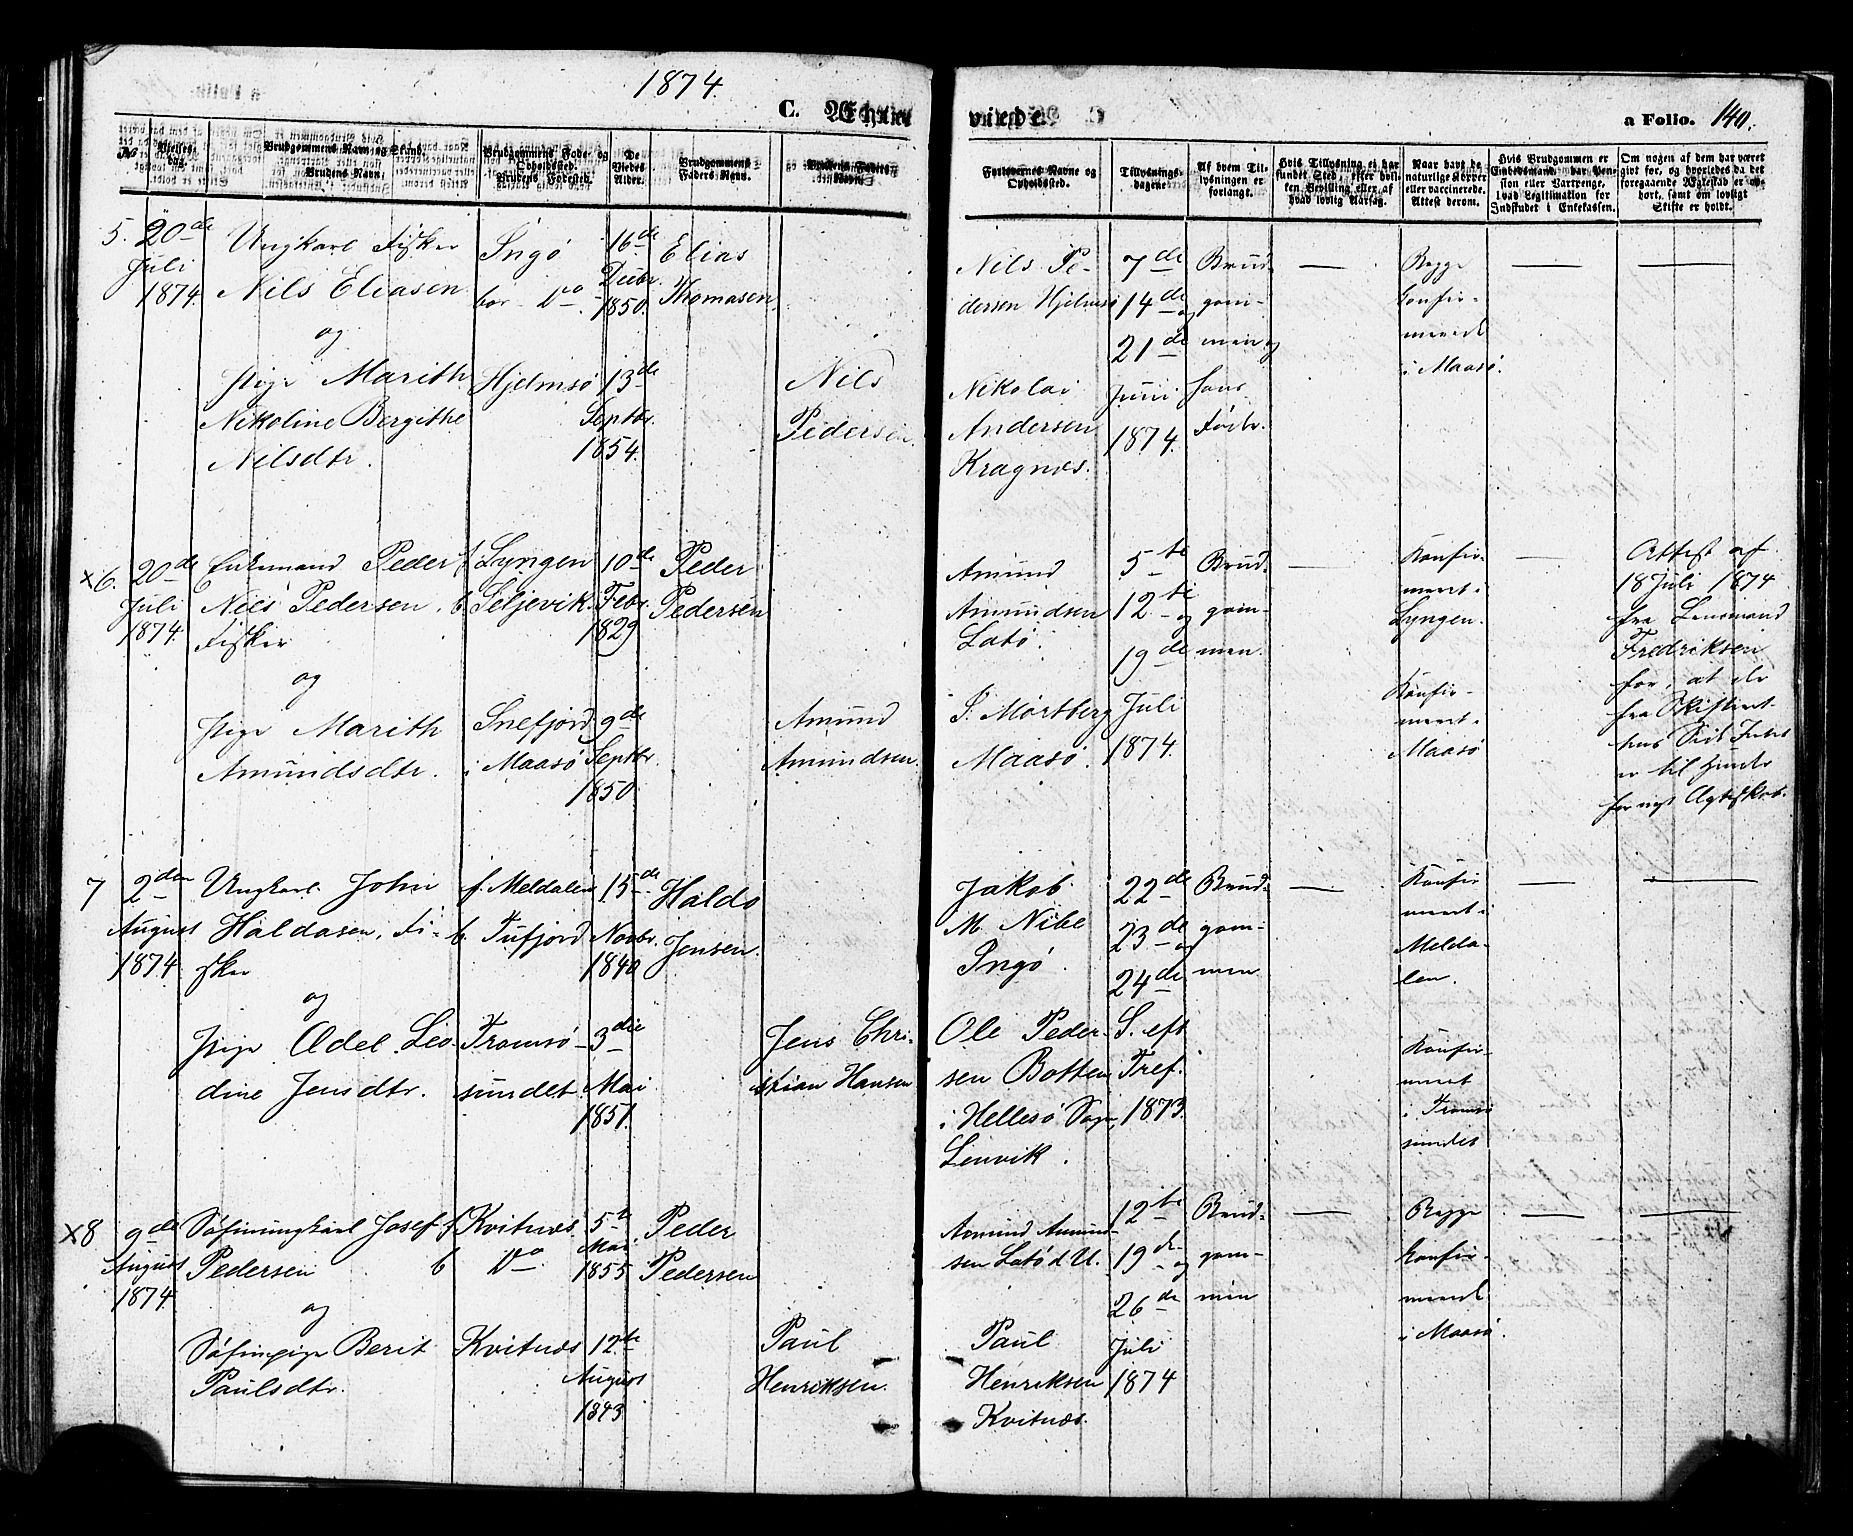 1874.
C. Ægte
viede.
a Folio. 140.
No
Vielses-
dag.
Brudgommens Navn og Stand.
Brudens Navn.
Brudgommens Føde- og
Opholdssted.
Brudens Fødested.
De
Viedes
Alder.
Brudgommens
Faders Navn.
Brudens Faders
Navn.
Forlovernes Navne og
Opholdssted.
Tillysnings-
dagene.
Af hvem Til-
lysningen er
forlangt.
Hvis Tillysning ei har
fundet Sted, efter hvil-
ken Bevilling eller af
hvad lovlig Aarsag.
Naar havt de
naturlige Kopper
eller vaccinerede.
Attest derom.
Hvis Brudgommen er
Embedsmand, har Pen-
sion eller Vartpenge,
hvad Legitimation for
Indskudet i Enkekassen.
Om nogen af dem har været
gift før, og hvorledes da det
foregaaende Ægteskab er op-
hørt, samt om lovligt
Skifte er holdt.
5.
20de
Juli
1874.
Ungkarl Fisker
Nils Eliasen
og
Pige Marith
Nikoline Bergithe
Nilsdtr.
Ingø
bor Do
Hjelmsø
16de
Decbr.
1850.
13de
Septbr.
1854.
Elias
Thomasen
Nils
Pedersen
Nils Pe-
dersen Hjelmsø
Nikolai
Andersen
Kragnæs.
7de
14de og
21de
Juni
1874.
Brud-
gom-
men og
hans
Fader.
Begge
konfir-
meret
i Maasø.
x6.
20de
Juli
1874.
Enkemand Peder
Nils Pedersen,
Fisker
og
Pige Marith
Amundsdtr.
f. Lyngen
b. Seljevik
Snefjord
i Maasø
10de
Febr.
1829
9de
Septbr.
1850.
Peder
Pedersen
Amund
Amundsen
Amund
Amundsen
Latø.
Mørtberg
Maasø.
5te
12te og
19de
Juli
1874.
Brud-
gom-
men.
Konfir-
meret i
Lyngen.
Konfir-
meret i
Maasø
Attest af
18 Juli 1874
fra Lensmand
Fredriksen
for, at der
fra Skifteret-
tens Side Intet
er til Hinder
for nyt Ægteskab.
7
2den
August
1874.
Ungkarl John
Haldosen, Fi-
sker
og
Pige Adel Leo-
dine Jensdtr.
f. Meldalen
b. Tufjord
Tromsø-
sundet
15de
Novbr.
1840
3die
Mai
1851.
Haldo
Jensen.
Jens Chri-
stian Hansen
Jakob
M. Nibe
Ingø.
Ole Peder-
sen Botten
i Hellesø Sogn,
Lenvik.
22de
23de og
24de
S. eft
Tref.
1873.
Brud-
gom-
men
Konfir-
meret i
Melda-
len.
Konfir-
meret
i Tromsø
sundet
x8
9de
August
1874
Søfinungkarl Josef
Pedersen
og
Søfinpige Berit
Paulsdtr.
f Kvitnæs
b Do
Kvitnæs
5te
Mai
1855
12te
August
1843
Peder
Pedersen
Paul
Henriksen.
Amund Amund-
sen Latø d. U.
Paul
Henriksen
Kvitnæs.
12te
19de og
26de
Juli
1874
Brud-
gom-
men
Begge
konfir-
meret
i Maasø.